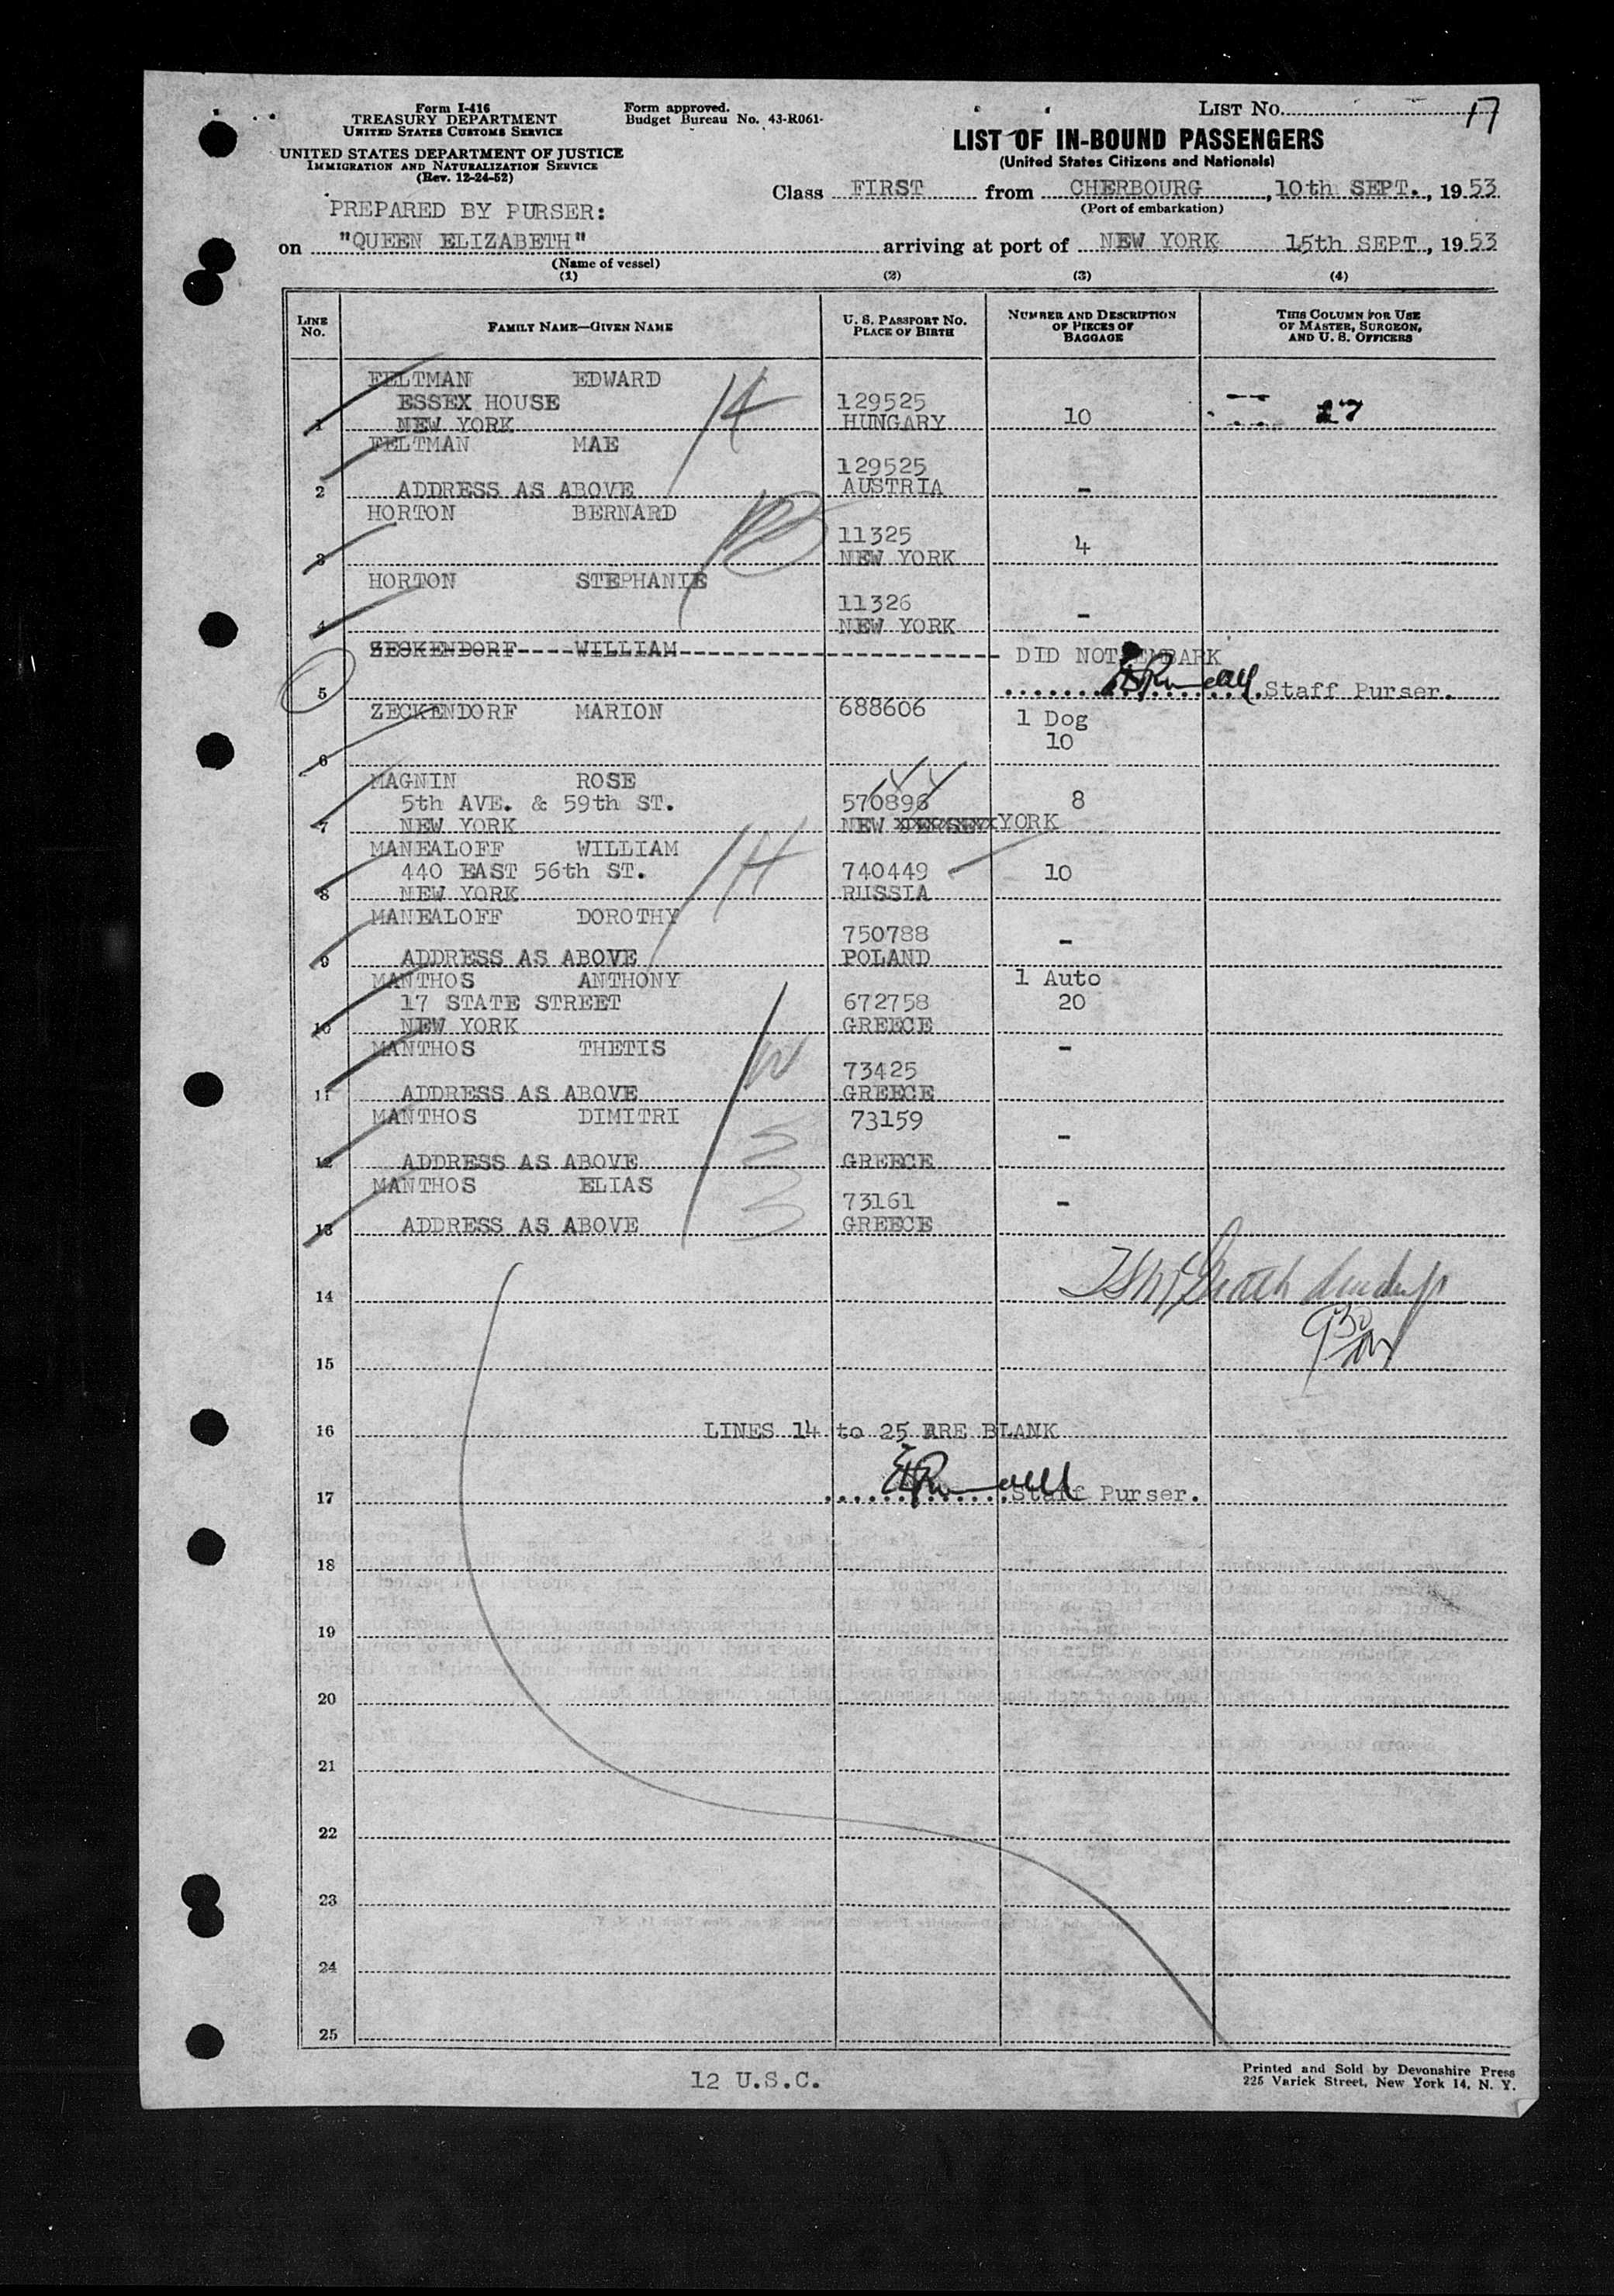 Form I-416
TREASURY DEPARTMENT
UNITED STATES CUSTOMS SERVICE
UNITED STATES DEPARTMENT OF JUSTICE
IMMIGRATION AND NATURALIZATION SERVICE
(Rev. 12-24-52)
Form approved.
Budget Bureau No. 43-R061-
LIST No. 17
LIST OF IN-BOUND PASSENGERS
(United States Citizens and Nationals)
Class FIRST from CHERBOURG, 10th SEPT., 1953
(Port of embarkation)
PREPARED BY PURSER:
on "QUEEN ELIZABETH" arriving at port of NEW YORK 15th SEPT, 1953
(Name of vessel)
(1) (2) (3) (4)
LINE No. FAMILY NAME—GIVEN NAME U. S. PASSPORT NO. PLACE OF BIRTH NUMBER AND DESCRIPTION OF PIECES OF BAGGAGE THIS COLUMN FOR USE OF MASTER, SURGEON, AND U. S. OFFICERS
FELTMAN EDWARD
ESSEX HOUSE 129525 27
1 NEW YORK HUNGARY 10
FELTMAN MAE
129525
2 ADDRESS AS ABOVE AUSTRIA -
HORTON BERNARD
11325 4
3 NEW YORK
HORTON STEPHANIE
11326 -
4 NEW YORK
ZECKENDORF WILLIAM DID NOT EMBARK
5 Staff Purser.
ZECKENDORF MARION 688606 1 Dog
10
6
MAGNIN ROSE
5th AVE. & 59th ST. 570896 8
7 NEW YORK NEW JERSEY YORK
MANEALOFF WILLIAM
440 EAST 56th ST. 740449 10
8 NEW YORK RUSSIA
MANEALOFF DOROTHY
750788 -
9 ADDRESS AS ABOVE POLAND
MANTHOS ANTHONY 1 Auto
17 STATE STREET 672758 20
10 NEW YORK GREECE
MANTHOS THETIS -
73425
11 ADDRESS AS ABOVE GREECE
MANTHOS DIMITRI 73159
-
12 ADDRESS AS ABOVE GREECE
MANTHOS ELIAS
73161 -
13 ADDRESS AS ABOVE GREECE
14
15
16 LINES 14 to 25 ARE BLANK
17 Staff Purser.
18
19
20
21
22
23
24
25
12 U.S.C.
Printed and Sold by Devonshire Press
225 Varick Street, New York 14, N. Y.